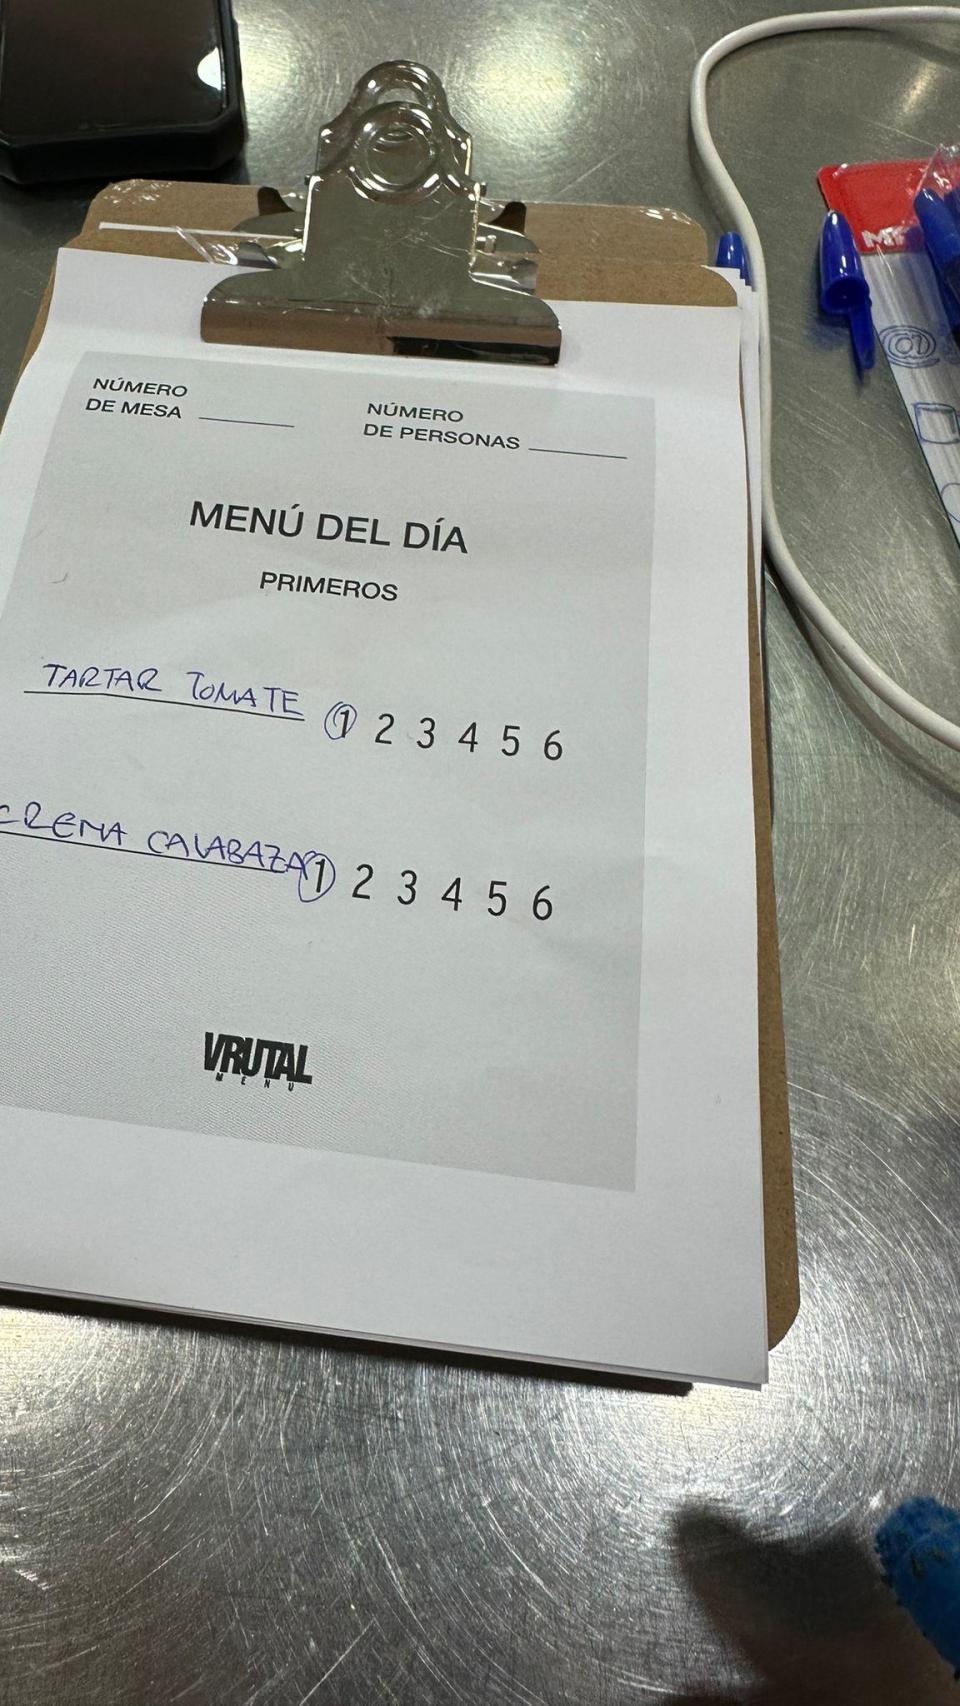 NÚMERO
DE MESA
NÚMERO
DE PERSONAS
MENÚ DEL DÍA
PRIMEROS
TARTAR TOMATE 1 2 3 4 5 6
CREMA CALABAZA 1 2 3 4 5 6
VRUTAL
MENU
@